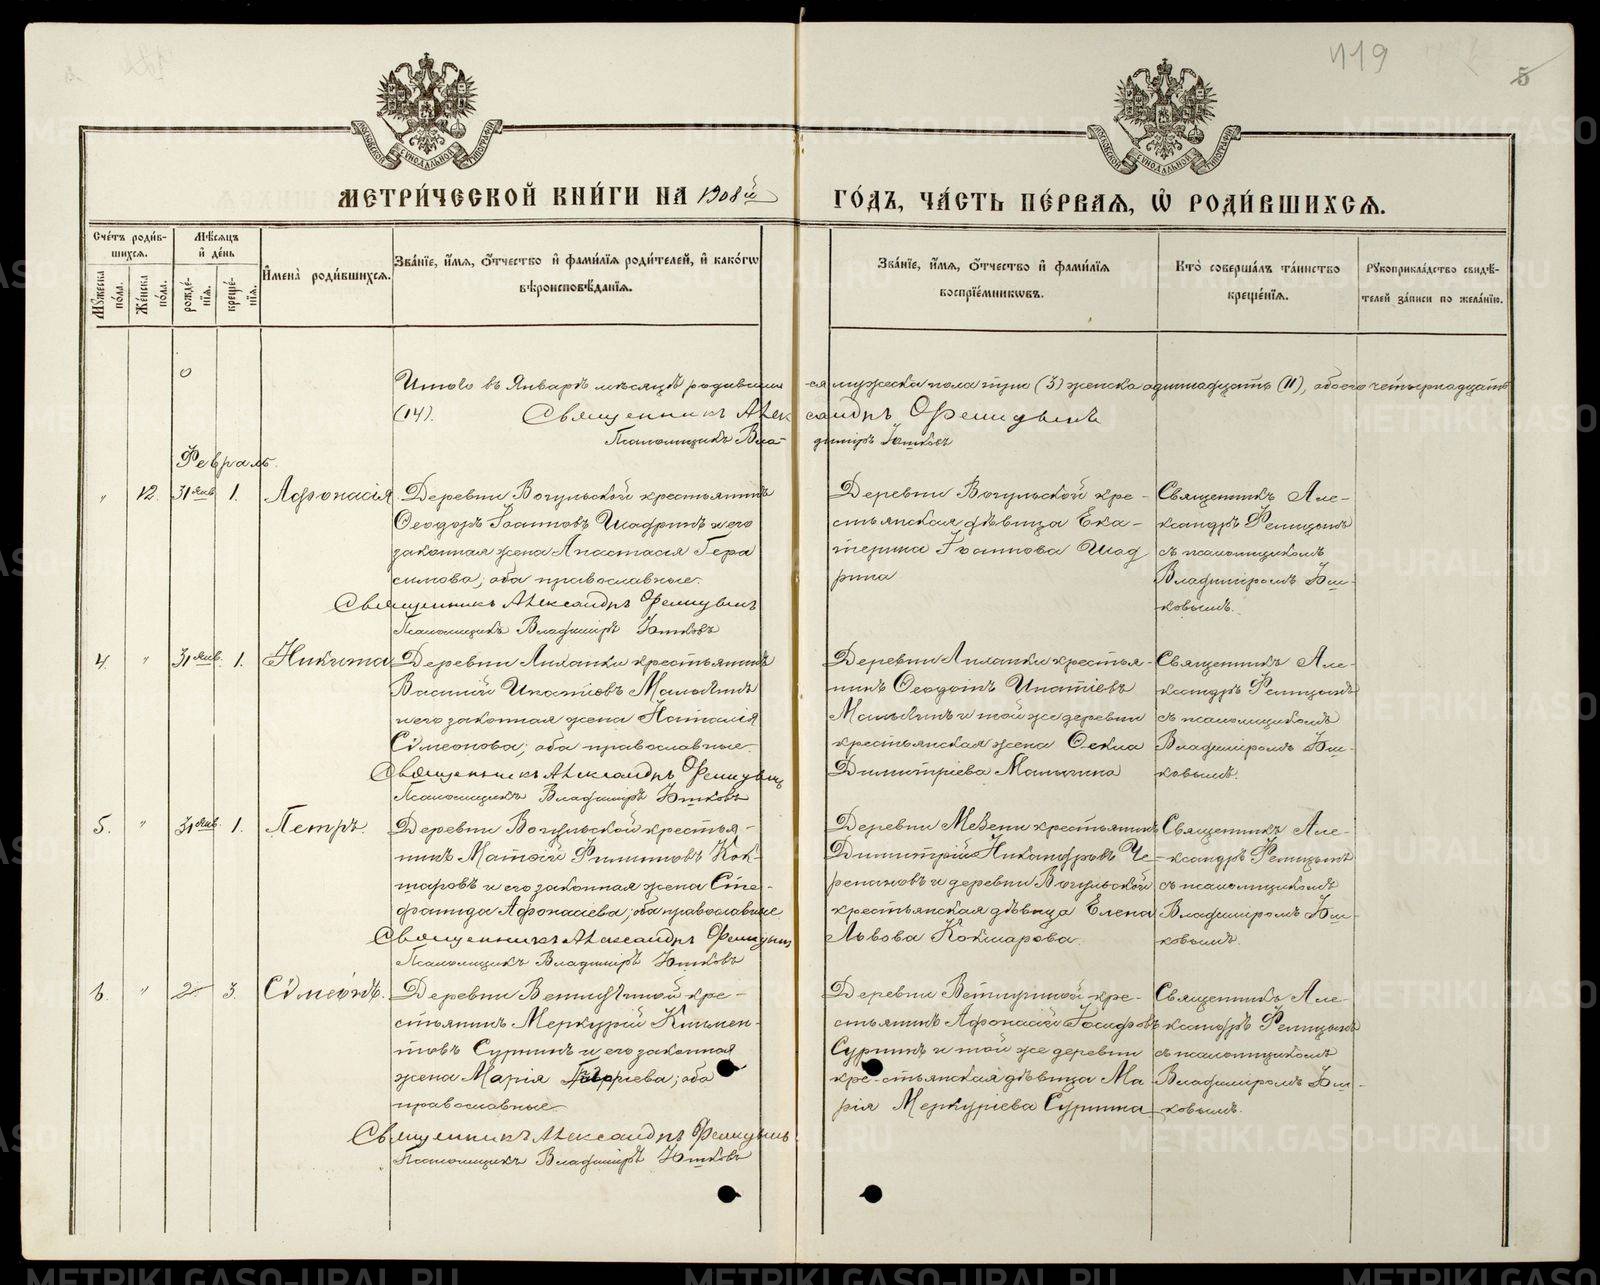 119
5
МЕТРИ́ЧЕСКОЙ КНИ́ГИ НА 1908й ГО́ДЪ, ЧА́СТЬ ПЕ́РВАѦ, Ѽ РОДИ́ВШИХСѦ.
Сче́тъ роди́в-
шихсѧ.
Мѣ́сѧцъ
и де́нь
Мꙋ́жеска по́ла.
Же́нска по́ла.
рожде́-
нїѧ.
креще́-
нїѧ.
И҆мена̀ роди́вшихсѧ.
Зва́нїе, и҆́мѧ, ѻ҆́тчество и҆ фами́лїѧ роди́телей, и҆ како́гѡ
вѣроисповѣ́данїѧ.
Зва́нїе, и҆́мѧ, ѻ҆́тчество и҆ фами́лїѧ
воспрїе́мникѡвъ.
Кто̀ соверша́лъ та́инство
креще́нїѧ.
Рꙋкоприкла́дство свидѣ́-
телей за́писи по жела́нїю.
Итого въ Январѣ мѣсяцѣ родивших-ся мужеска пола три (3) женска одиннадцать (11), обоего четырнадцать
(14). Священникъ Александръ
Псаломщикъ Владиміръ Юшковъ
Февраль.
" 12. 31 янв 1. Афонасія
Деревни Вогульской крестьянинъ
Ѳеодоръ Іоанновъ Шадринъ и его
законная жена Анастасія Гера
симова; оба православные.
Священникъ Александръ
Псаломщикъ Владиміръ Юшковъ
Деревни Вогульской кре-
стьянская дѣвица Ека-
терина Іоаннова Шад
рина
Священникъ Але-
ксандръ
съ псаломщикомъ
Владиміромъ Юш-
ковымъ.
4. " 31 янв. 1. Никита
Деревни крестьянинъ
Василій Ипатіевъ Малыгинъ
и его законная жена Наталія
Сѵмеонова; оба православные.
Священникъ Александръ
Псаломщикъ Владиміръ Юшковъ
Деревни крестья-
нинъ Ипатіевъ
Малыгинъ и той же деревни
крестьянская жена Ѳекла
Димитріева Малыгина
Священникъ Але-
ксандръ
съ псаломщикомъ
Владиміромъ Юш-
ковымъ.
5. " 31 янв. 1. Петръ.
Деревни Вогульской крестья-
нинъ Матѳей Филипповъ Кок-
шаровъ и его законная жена Сте-
фанида Афонасіева; оба православные
Священникъ Александръ
Псаломщикъ Владиміръ Юшковъ
Деревни Мезени крестьянинъ
Димитрій Никандровъ Че-
репановъ и деревни Вогульской
крестьянская дѣвица Елена
Львова Кокшарова.
Священникъ Але-
ксандръ
съ псаломщикомъ
Владиміромъ Юш-
ковымъ.
6. " 2 3. Сѵмеонъ.
Деревни кре-
стьянинъ Меркурій Климен-
товъ Суринъ и его законная
жена Марія оба
православные.
Священникъ Александръ
Псаломщикъ Владиміръ Юшковъ
Деревни кре-
стьянинъ Афонасій Іосифовъ
Суринъ и той же деревни
кре-стьянская дѣвица Ма-
рія Меркуріева Сурина
Священникъ Але-
ксандръ
съ псаломщикомъ
Владиміромъ Юш-
ковымъ.
METRIKI.GASO-URAL.RU